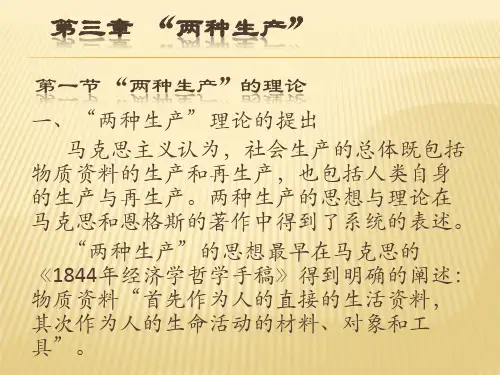 第三章 “两种生产”
第一节 “两种生产”的理论
一、“两种生产”理论的提出
马克思主义认为，社会生产的总体既包括
物质资料的生产和再生产，也包括人类自身
的生产与再生产。两种生产的思想与理论在
马克思和恩格斯的著作中得到了系统的表述。
“两种生产”的思想最早在马克思的
《1844年经济学哲学手稿》得到明确的阐述：
物质资料“首先作为人的直接的生活资料，
其次作为人的生命活动的材料、对象和工
具”。